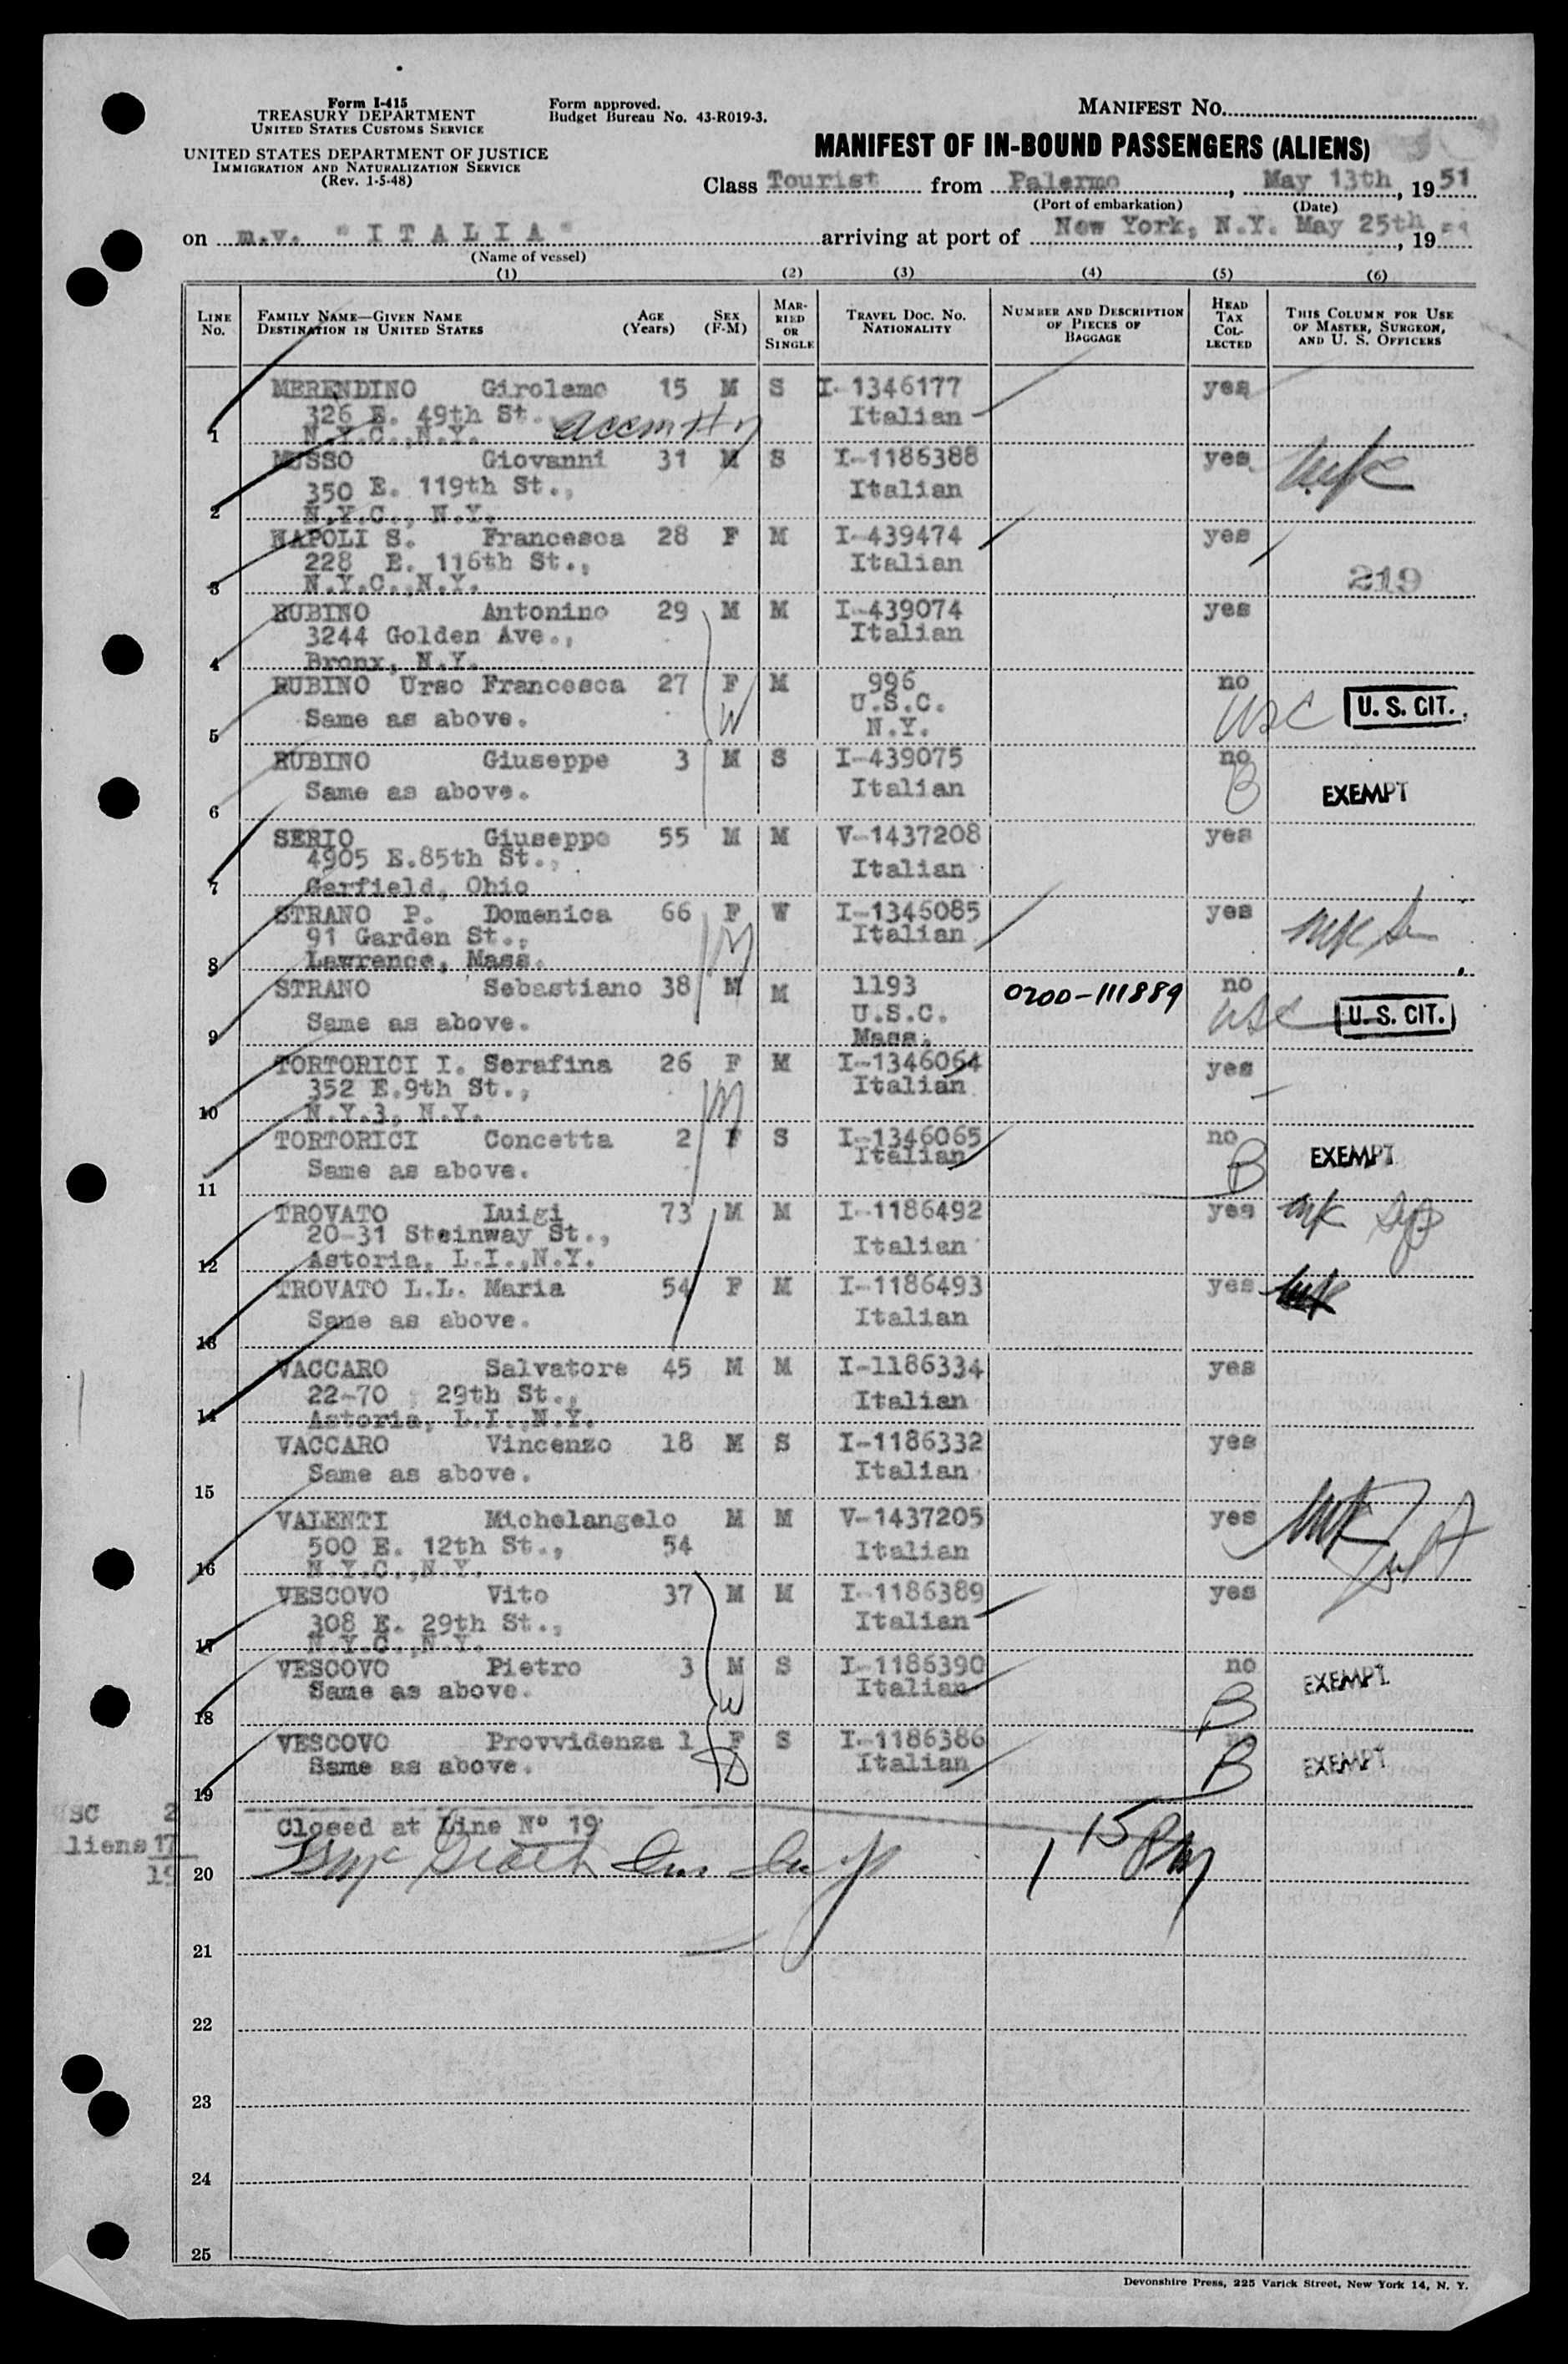 Form I-415
TREASURY DEPARTMENT
UNITED STATES CUSTOMS SERVICE
UNITED STATES DEPARTMENT OF JUSTICE
IMMIGRATION AND NATURALIZATION SERVICE
(Rev. 1-5-48)
Form approved.
Budget Bureau No. 43-R019-3.
MANIFEST NO.
MANIFEST OF IN-BOUND PASSENGERS (ALIENS)
Class Tourist from Palermo, May 13th, 1951
(Port of embarkation) (Date)
on m.v. "ITALIA" arriving at port of New York, N.Y. May 25th, 19
(Name of vessel)
(1) (2) (3) (4) (5) (6)
LINE No.
FAMILY NAME—GIVEN NAME
DESTINATION IN UNITED STATES
AGE (Years)
SEX (F-M)
MARRIED OR SINGLE
TRAVEL DOC. NO. NATIONALITY
NUMBER AND DESCRIPTION OF PIECES OF BAGGAGE
HEAD TAX COLLECTED
THIS COLUMN FOR USE OF MASTER, SURGEON, AND U. S. OFFICERS
MERENDINO Girolamo 15 M S I-1346177 yes
326 E. 49th St. Italian
1 N.Y.C.,N.Y.
MUSSO Giovanni 31 M S I-1186388 yes
350 E. 119th St., Italian
2 N.Y.C., N.Y.
NAPOLI S. Francesca 28 F M I-439474 yes
228 E. 116th St., Italian
3 N.Y.C.,N.Y. 219
RUBINO Antonino 29 M M I-439074 yes
3244 Golden Ave., Italian
4 Bronx, N.Y.
RUBINO Urso Francesca 27 F M 996 no
Same as above. U.S.C. USC U. S. CIT.
5 W N.Y.
RUBINO Giuseppe 3 M S I-439075 no
Same as above. Italian B EXEMPT
6
SERIO Giuseppe 55 M M V-1437208 yes
4905 E.85th St., Italian
7 Garfield, Ohio
STRANO P. Domenica 66 F W I-1346085 yes
91 Garden St., Italian
8 Lawrence, Mass.
STRANO Sebastiano 38 M M 1193 0200-111889 no
Same as above. U.S.C. USC U. S. CIT.
9 Mass.
TORTORICI I. Serafina 26 F M I-1346064 yes
352 E.9th St., Italian
10 N.Y.3, N.Y.
TORTORICI Concetta 2 F S I-1346065 no
Same as above. Italian B EXEMPT
11
TROVATO Luigi 73 M M I-1186492 yes
20-31 Steinway St., Italian
12 Astoria, L.I.,N.Y.
TROVATO L.L. Maria 54 F M I-1186493 yes
Same as above. Italian
13
VACCARO Salvatore 45 M M I-1186334 yes
22-70 29th St., Italian
14 Astoria, L.I.,N.Y.
VACCARO Vincenzo 18 M S I-1186332 yes
Same as above. Italian
15
VALENTI Michelangelo M M V-1437205 yes
500 E. 12th St., 54 Italian
16 N.Y.C.,N.Y.
VESCOVO Vito 37 M M I-1186389 yes
308 E. 29th St., Italian
17 N.Y.C.,N.Y.
VESCOVO Pietro 3 M S I-1186390 no
Same as above. Italian B EXEMPT
18 W
VESCOVO Provvidenza 1 F S I-1186386 no
Same as above. Italian B EXEMPT
19
SC 2
Closed at Line Nº 19
liens 17
1 15 PM
19
20
21
22
23
24
25
Devonshire Press, 225 Varick Street, New York 14, N. Y.